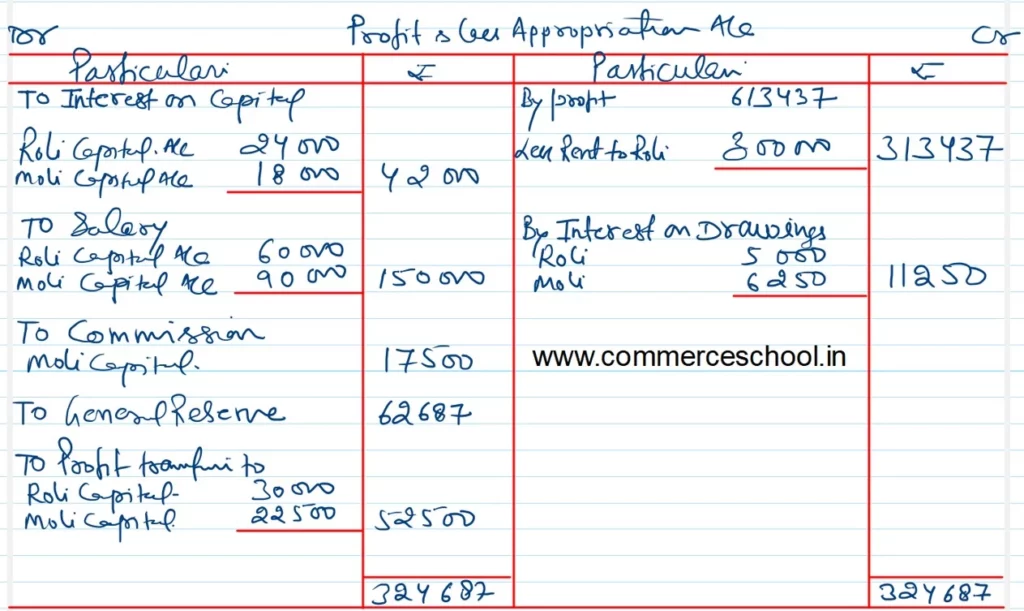 Dr Profit & Loss Appropriation A/c Cr
Particulars ₹ Particulars ₹
To Interest on Capital
Roli Capital A/c 24000
Moli Capital A/c 18000 42000
To Salary
Roli Capital A/c 60000
Moli Capital A/c 90000 150000
To Commission
Moli Capital. 17500
To General Reserve 62687
To Profit transfer to
Roli Capital- 30000
Moli Capital. 22500 52500
324687
By profit 613437
Less Rent to Roli 300000 313437
By Interest on Drawings
Roli 5000
Moli 6250 11250
www.commerceschool.in
324687